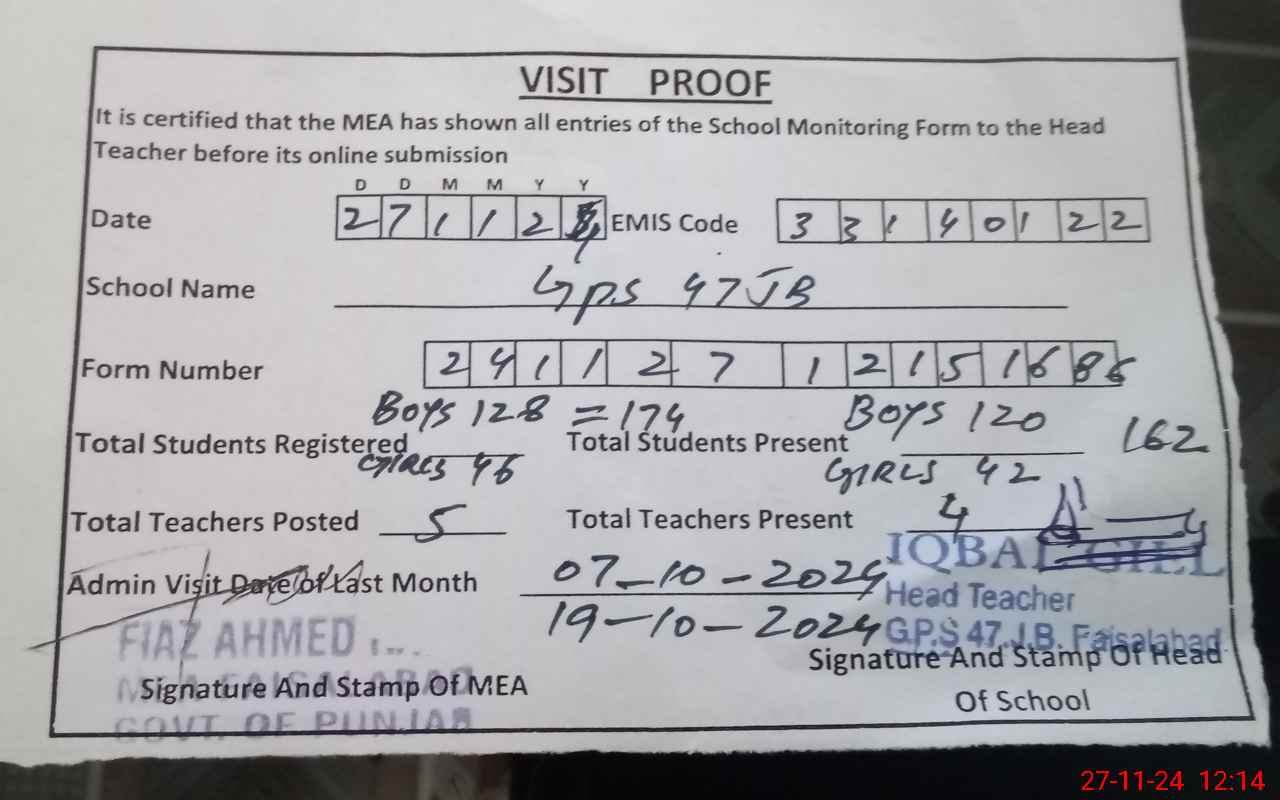 VISIT PROOF
It is certified that the MEA has shown all entries of the School Monitoring Form to the Head
Teacher before its online submission
D D M M Y Y
Date 2 7 1 1 2 4 EMIS Code 3 3 1 4 0 1 2 2
School Name GPS 47 JB
Form Number 2 4 1 1 2 7 1 2 1 5 1 6 8 6
Boys 128 = 174 Boys 120
Total Students Registered Total Students Present 162
GIRLS 46 GIRLS 42
Total Teachers Posted 5 Total Teachers Present 4
IQBAL GILL
Admin Visit Date of Last Month 07-10-2024
Head Teacher
19-10-2024 G.P.S 47 J.B. Faisalabad
FIAZ AHMED
Signature And Stamp Of Head
Of School
MEA FAISALABAD
Signature And Stamp Of MEA
GOVT. OF PUNJAB
27-11-24 12:14